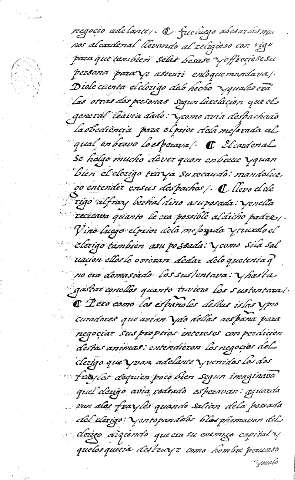 negocio adelante. ¶ fue luego a besar las ma
nos al cardenal llevando al religioso con sigo
para que tambien se las besase y ofreciese su
persona para yr a servir en lo que mandava.
Diole cuenta el clerigo de lo hecho y quales era
las otras dos personas segun la relacion que el
general le avia dado: y como avia despachado
la obediencia para el prior de la mejorada al
qual en bravo lo esperava. ¶ El cardenal
se holgo mucho de ver quan en breve y quan
bien el clerigo traya su recaudo: mandole lue
go entender en sus despachos. ¶ llevo el cle
rigo al frayle bernaldino a su posada: y en ella
recreava quanto le era possible al dicho padre.
Vino luego el prior de la mejorada y tuvolo el
clerigo tambien a su posada: y como si a sal
vacion ellos le ovieran de dar de lo que tenia q
no era demasiado los sustentava: y hasta
gastar con ellos quanto tuviera los sustentara.
¶ Pero como los españoles destas islas pro
curadores que avian ydo dellas a españa para
negociar sus proprios intereses con perdicion
destas animas: entendieron los negocios del
clerigo que yvan adelante y venidos los dos
frayles de quien poco bien segun imaginava
quel clerigo avia redeado esperavan: guarda
van a los frayles quando salian de la posada
del clerigo: y topandolos blasphemavan del
clerigo diziendo que era su enemigo capital y
que los queria destruyr como hombre